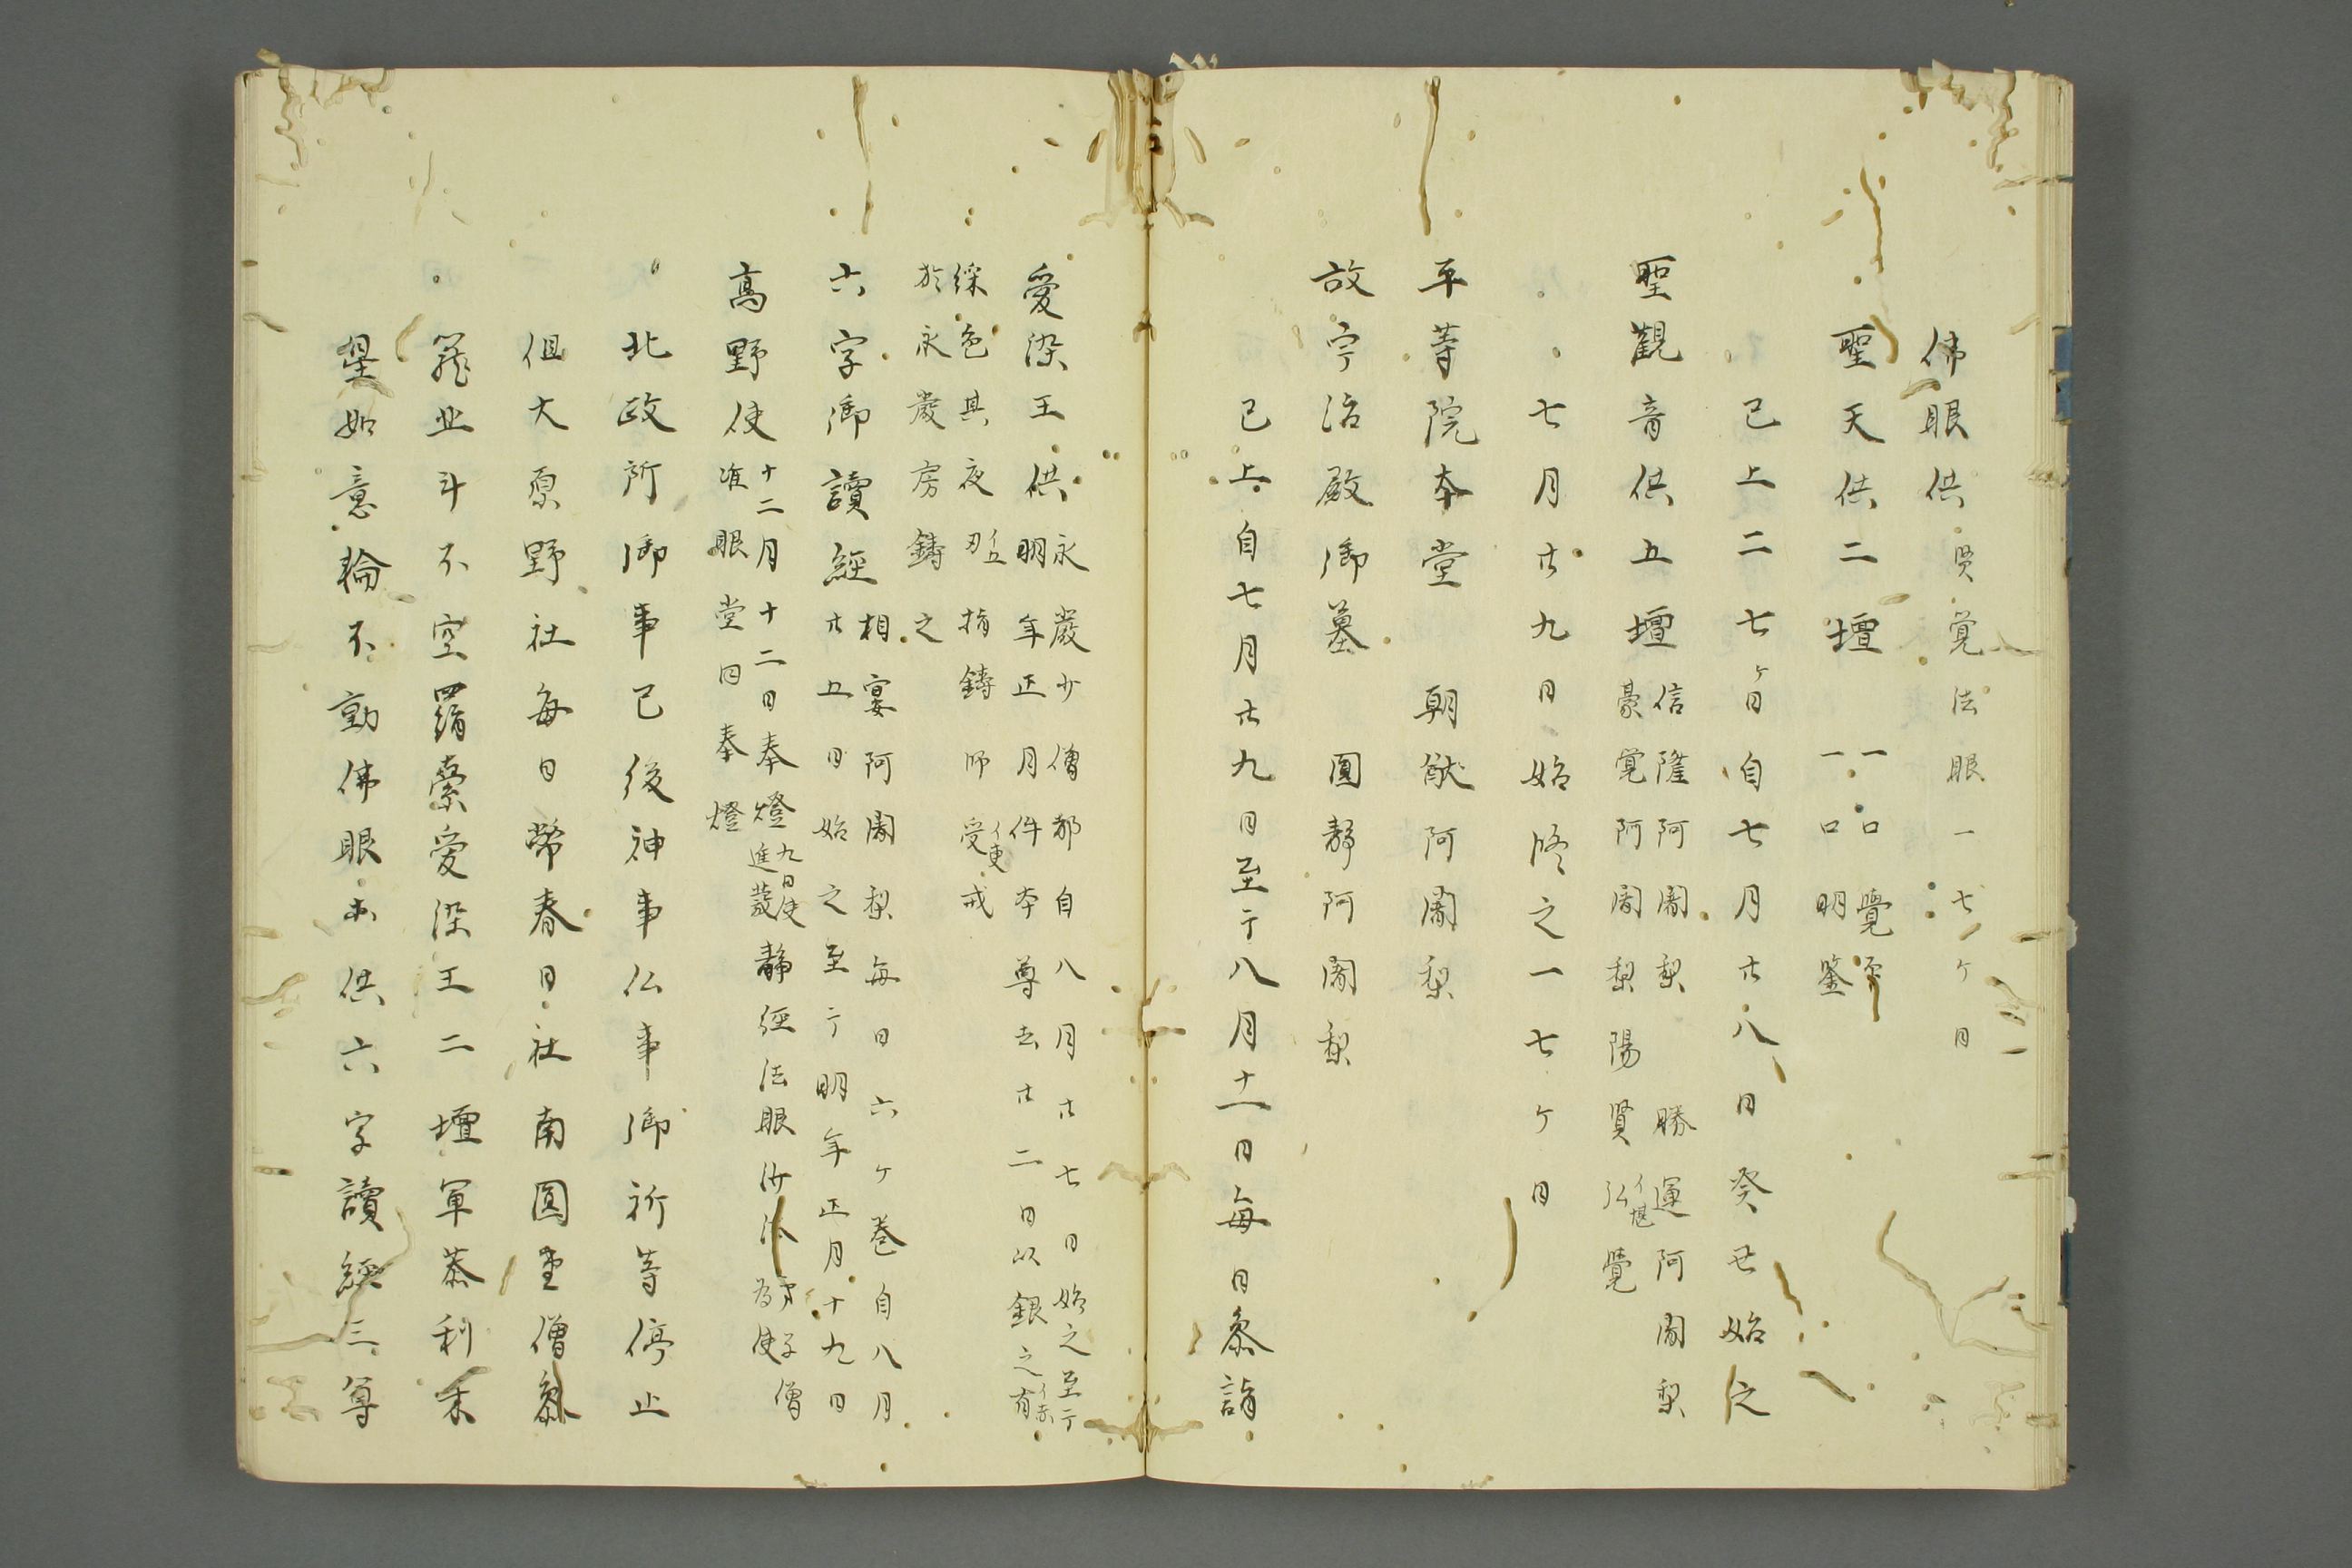 佛眼供 賢覚法眼一七ヶ日
聖天供二壇
一口 覺
一口 明鑒
已上二七ヶ日自七月廿八日癸丑始之
聖觀音供五壇
信隆阿闍梨 勝運阿闍梨
豪覚阿闍梨 陽賢 弘イ堪覺
七月廿九日始修之一七ヶ日
平等院本堂 朝猷阿闍梨
故宇治殿御墓 圓静阿闍梨
已上自七月廿九日至于八月十一日毎日参詣
愛染王供
永嚴少僧都自八月廿七日始之至于
明年正月件本尊去廿二日以銀之
綵色其夜 指鑄師受イ更戒
於永嚴房鑄之
六字御讀經
相宴阿闍梨毎日六ヶ巻自八月
廿五日始之至于明年正月十九日
高野使
十二月十二日奉燈
准眼堂同奉燈
九日使
進發
静經法眼
弟子僧
為使
北政所御事已後神事仏事御祈等停止
但大原野社毎日幣春日社南圓堂僧参
籠北斗不空羂索愛染王二壇軍荼利朱
星如意輪不動佛眼等供六字讀經三尊